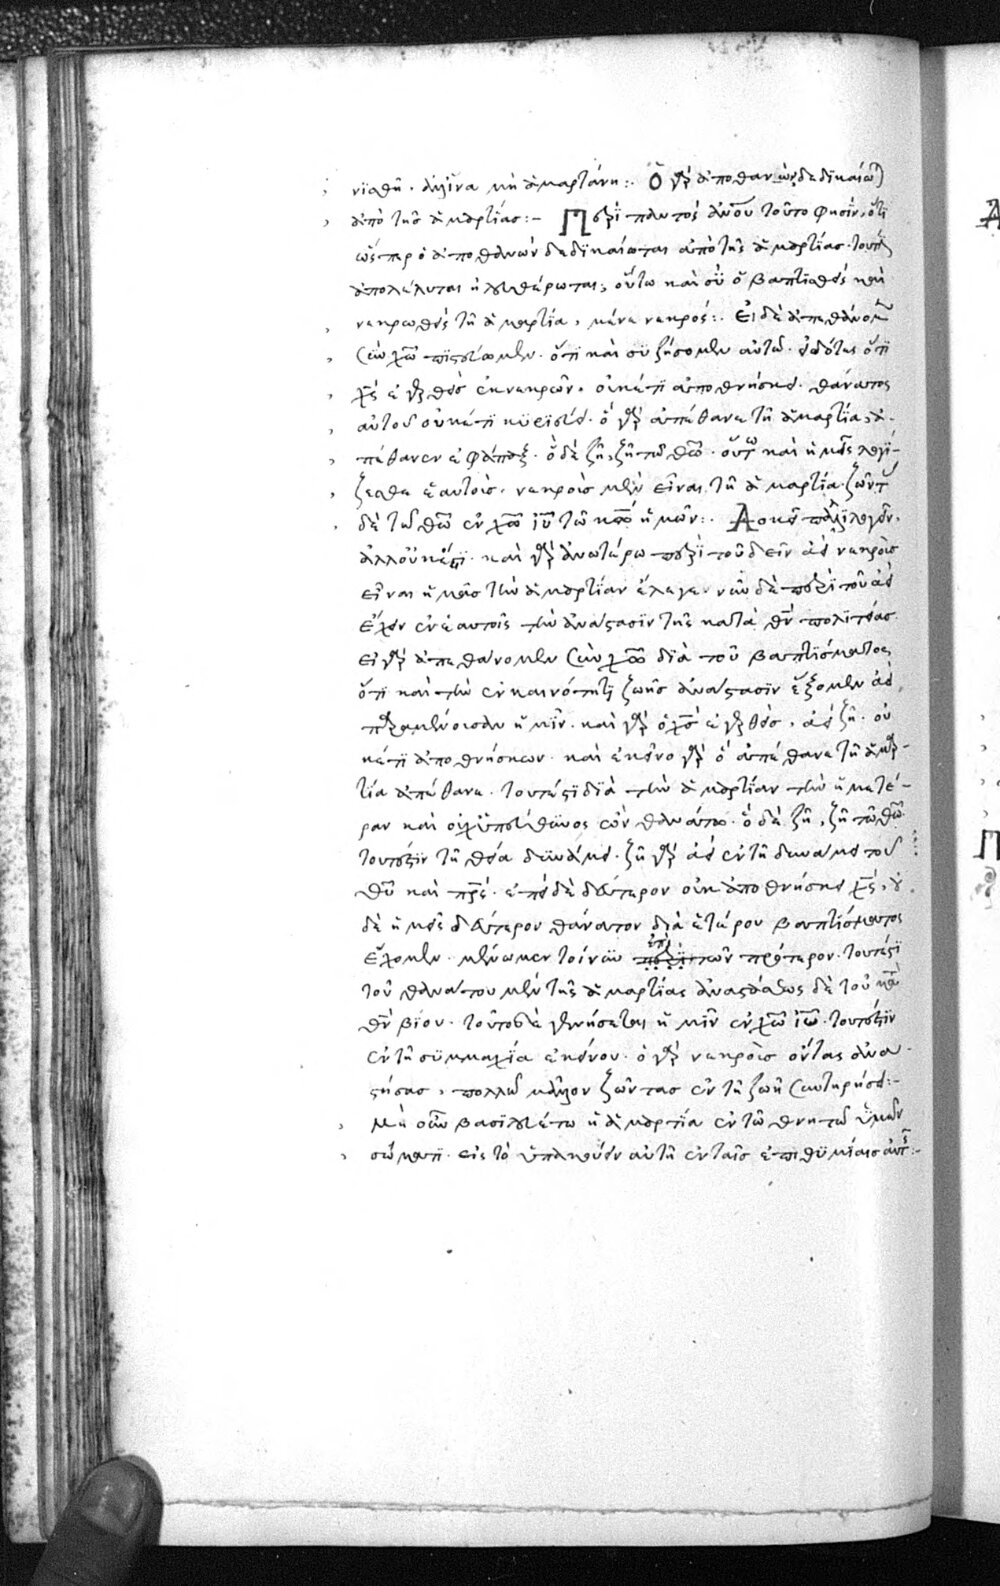 νισθῆ· ἀλλ' ἵνα μὴ ἁμαρτάνη:. Ὁ γὰρ ἀποθανὼν δεδικαίωται
ἀπὸ τῆς ἁμαρτίας:– Περὶ παντὸς ἀνου τοῦτο φησὶν, ὅτι
ὥσπερ ὁ ἀποθανὼν δεδικαίωται ἀπὸ τῆς ἁμαρτίας· τουτέστιν
ἀπολέλυται ἠλευθέρωται, οὕτω καὶ σὺ ὁ βαπτισθεὶς καὶ
νεκρωθεὶς τῆ ἁμαρτία, μένε νεκρός:. Εἰ δὲ ἀπεθάνομεν
σὺν χω πιστεύομεν· ὅτι καὶ συζήσομεν αὐτῶ· εἰδότες ὅτι
χς ἐγερθεὶς ἐκ νεκρῶν, οὐκέτι ἀποθνήσκει· θάνατος
αὐτοῦ οὐκέτι κυριεύει· ὁ γὰρ ἀπέθανε τῆ ἁμαρτία, ἀ-
πέθανεν ἐφάπαξ· ὁ δὲ ζῆ, ζῆ τῶ θω· οὕτω καὶ ὑμεῖς λογί-
ζεσθε ἑαυτοὺς, νεκροὺς μὲν εἶναι τῆ ἁμαρτία· ζῶντας
δὲ τῶ θω ἐν χω ιυ τῶ κω ἡμῶν:. Δοκεῖ παλιλλογεῖν,
ἀλλ' οὐκ ἔστι· καὶ γὰρ ἀνωτέρω περὶ τοῦ δεῖν ἀεὶ νεκροὺς
εἶναι ἡμᾶς τὴν ἁμαρτίαν ἔλεγε· νῦν δὲ περὶ τοῦ ἀεὶ
ἔχειν ἐν ἑαυτοῖς τὴν ἀνάστασιν τῆς κατὰ θν πολιτείας·
εἰ γὰρ ἀπεθάνομεν σὺν χω διὰ τοῦ βαπτίσματος
ὅτι καὶ τὴν ἐν καινότητι ζωῆς ἀνάστασιν ἕξομεν ἀεὶ
παραμένουσαν ἡμῖν· καὶ γὰρ ὁ χς ἐγερθεὶς, ἀεὶ ζῆ· οὐ
κέτι ἀποθνήσκων· καὶ ἐκεῖνο γὰρ ὃ ἀπέθανε τῆ ἁμαρ-
τία ἀπέθανε· τουτέστι διὰ τὴν ἁμαρτίαν τὴν ἡμετέ-
ραν καὶ οὐχ ὑπεύθυνος ὢν θανάτω· ὃ δὲ ζῆ, ζῆ τῶ θω
τουτέστιν τῆ θεία δυνάμει· ζῆ γὰρ ἀεὶ ἐν τῆ δυνάμει τοῦ
θυ καὶ πρς· ἐπεὶ δὲ δεύτερον οὐκ ἀποθνήσκει χς, οὐ
δὲ ἡμεῖς δεύτερον θάνατον διὰ ἑτέρου βαπτίσματος
ἔχομεν· μένωμεν τοίνυν ἐπὶ τῶν πρότερον· τουτέστι
τοῦ θανάτου μὲν τῆς ἁμαρτίας ἀναστάσεως δὲ τοῦ κατὰ
θν βίου· τοῦτο δὲ γενήσεται ἡμῖν ἐν χω ιυ· τουτέστιν
ἐν τῆ συμμαχία ἐκείνου· ὁ γὰρ νεκροὺς ὄντας ἀνα-
στήσας, πολλῶ μᾶλλον ζῶντας ἐν τῆ ζωῆ συντηρήσει:–
Μὴ οὖν βασιλευέτω ἡ ἁμαρτία ἐν τῶ θνητῶ ὑμῶν
σώματι· εἰς τὸ ὑπακούειν αὐτῆ ἐν ταῖς ἐπιθυμίαις αὐτοῦ:–